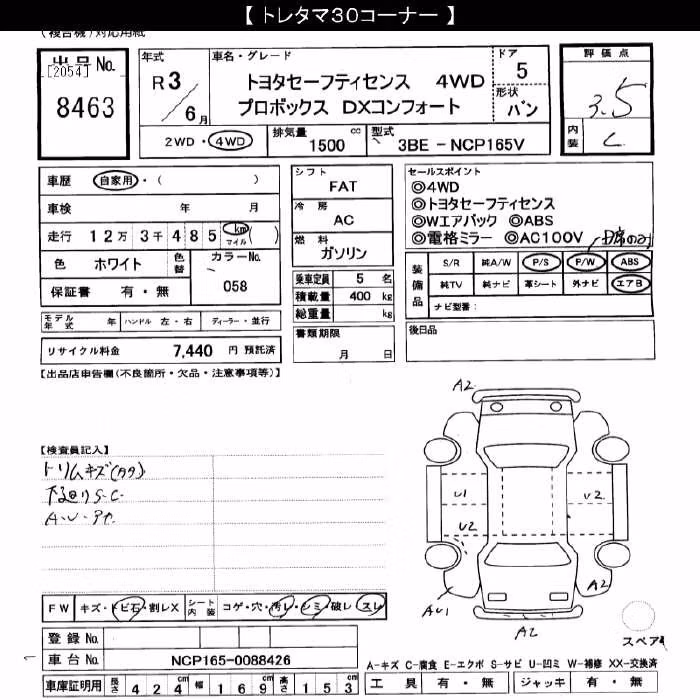 【 トレタマ３０コーナー 】
(複合機)対応用紙
出品No.
[2054]
8463
年式
R3／6月
車名・グレード
トヨタセーフティセンス 4WD
プロボックス DXコンフォート
ドア
5
形状
バン
評価点
3.5
内装
C
2WD・4WD
排気量
1500 cc
型式
3BE - NCP165V
車歴 自家用・( )
車検 年 月
走行 12万 3千 485 km マイル ( )
色 ホワイト 色替 カラーNo. 058
保証書 有・無
シフト
FAT
冷房
AC
燃料
ガソリン
乗車定員 5 名
積載量 400 kg
総重量 kg
セールスポイント
◎4WD
◎トヨタセーフティセンス
◎Wエアバック ◎ABS
◎電格ミラー ◎AC100V
D席のみ
装備品
S/R 純A/W P/S P/W ABS
純TV 純ナビ 革シート 外ナビ エアB
ナビ型番：
モデル年式 年 ハンドル 左・右 ディーラー・並行
リサイクル料金 7,440 円 預託済
書類期限
月 日
後日品
【出品店申告欄(不良箇所・欠品・注意事項等)】
【検査員記入】
トリムキズ(カタ)
下廻りS-C-
A-U-
A2
U1
U2
U2
U2
A2
AU1
A2
スペア
FW キズ・トビ石・割レX シート内装 コゲ・穴・汚レ・シミ・破レ・スレ
登録 No.
車台 No. NCP165-0088426
車庫証明用 長さ 424cm 幅 169cm 高さ 153
A-キズ C-腐食 E-エクボ S-サビ U-凹ミ W-補修 XX-交換済
工具 有・無 ジャッキ 有・無